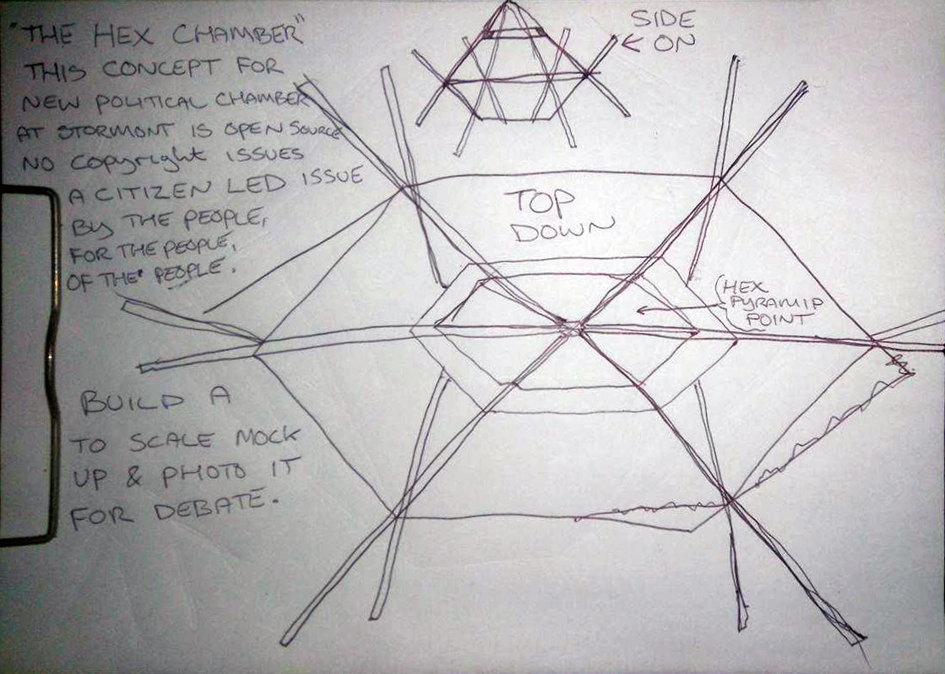 "THE HEX CHAMBER"
THIS CONCEPT FOR
NEW POLITICAL CHAMBER
AT STORMONT IS OPEN SOURCE
NO COPYRIGHT ISSUES
A CITIZEN LED ISSUE
BY THE PEOPLE,
FOR THE PEOPLE,
OF THE PEOPLE.
BUILD A
TO SCALE MOCK
UP & PHOTO IT
FOR DEBATE.
SIDE
ON
TOP
DOWN
HEX
PYRAMID
POINT